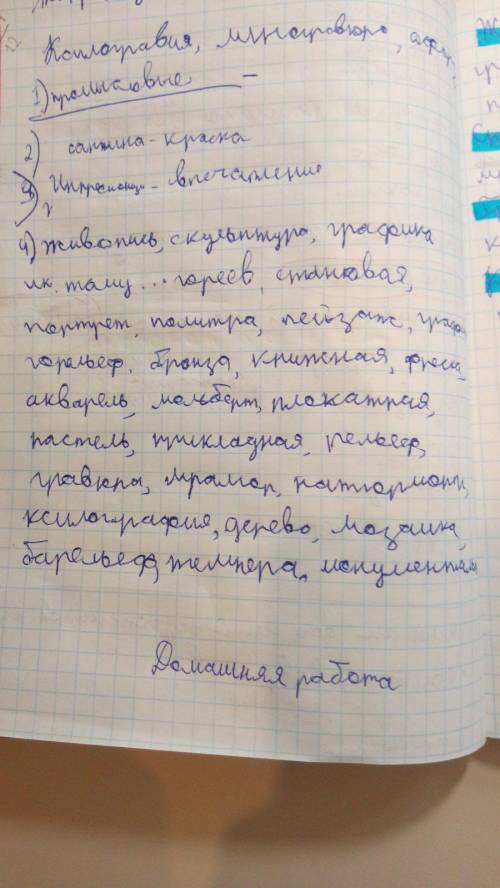 Ксилогравия, линогравюра, офор
1) промысловые –
2) сангина - краска
3) - впечатление
4) живопись, скульптура, графика
станковая,
портрет, политра, пейзаж, граф
горельеф, бронза, книжная, фреска,
акварель, мольберт, плокатная,
пастель, прикладная, рельеф,
гравюра, мрамор, натюрморт,
ксилография, дерево, мозаика,
барельеф, темпера, монументал
Домашняя работа